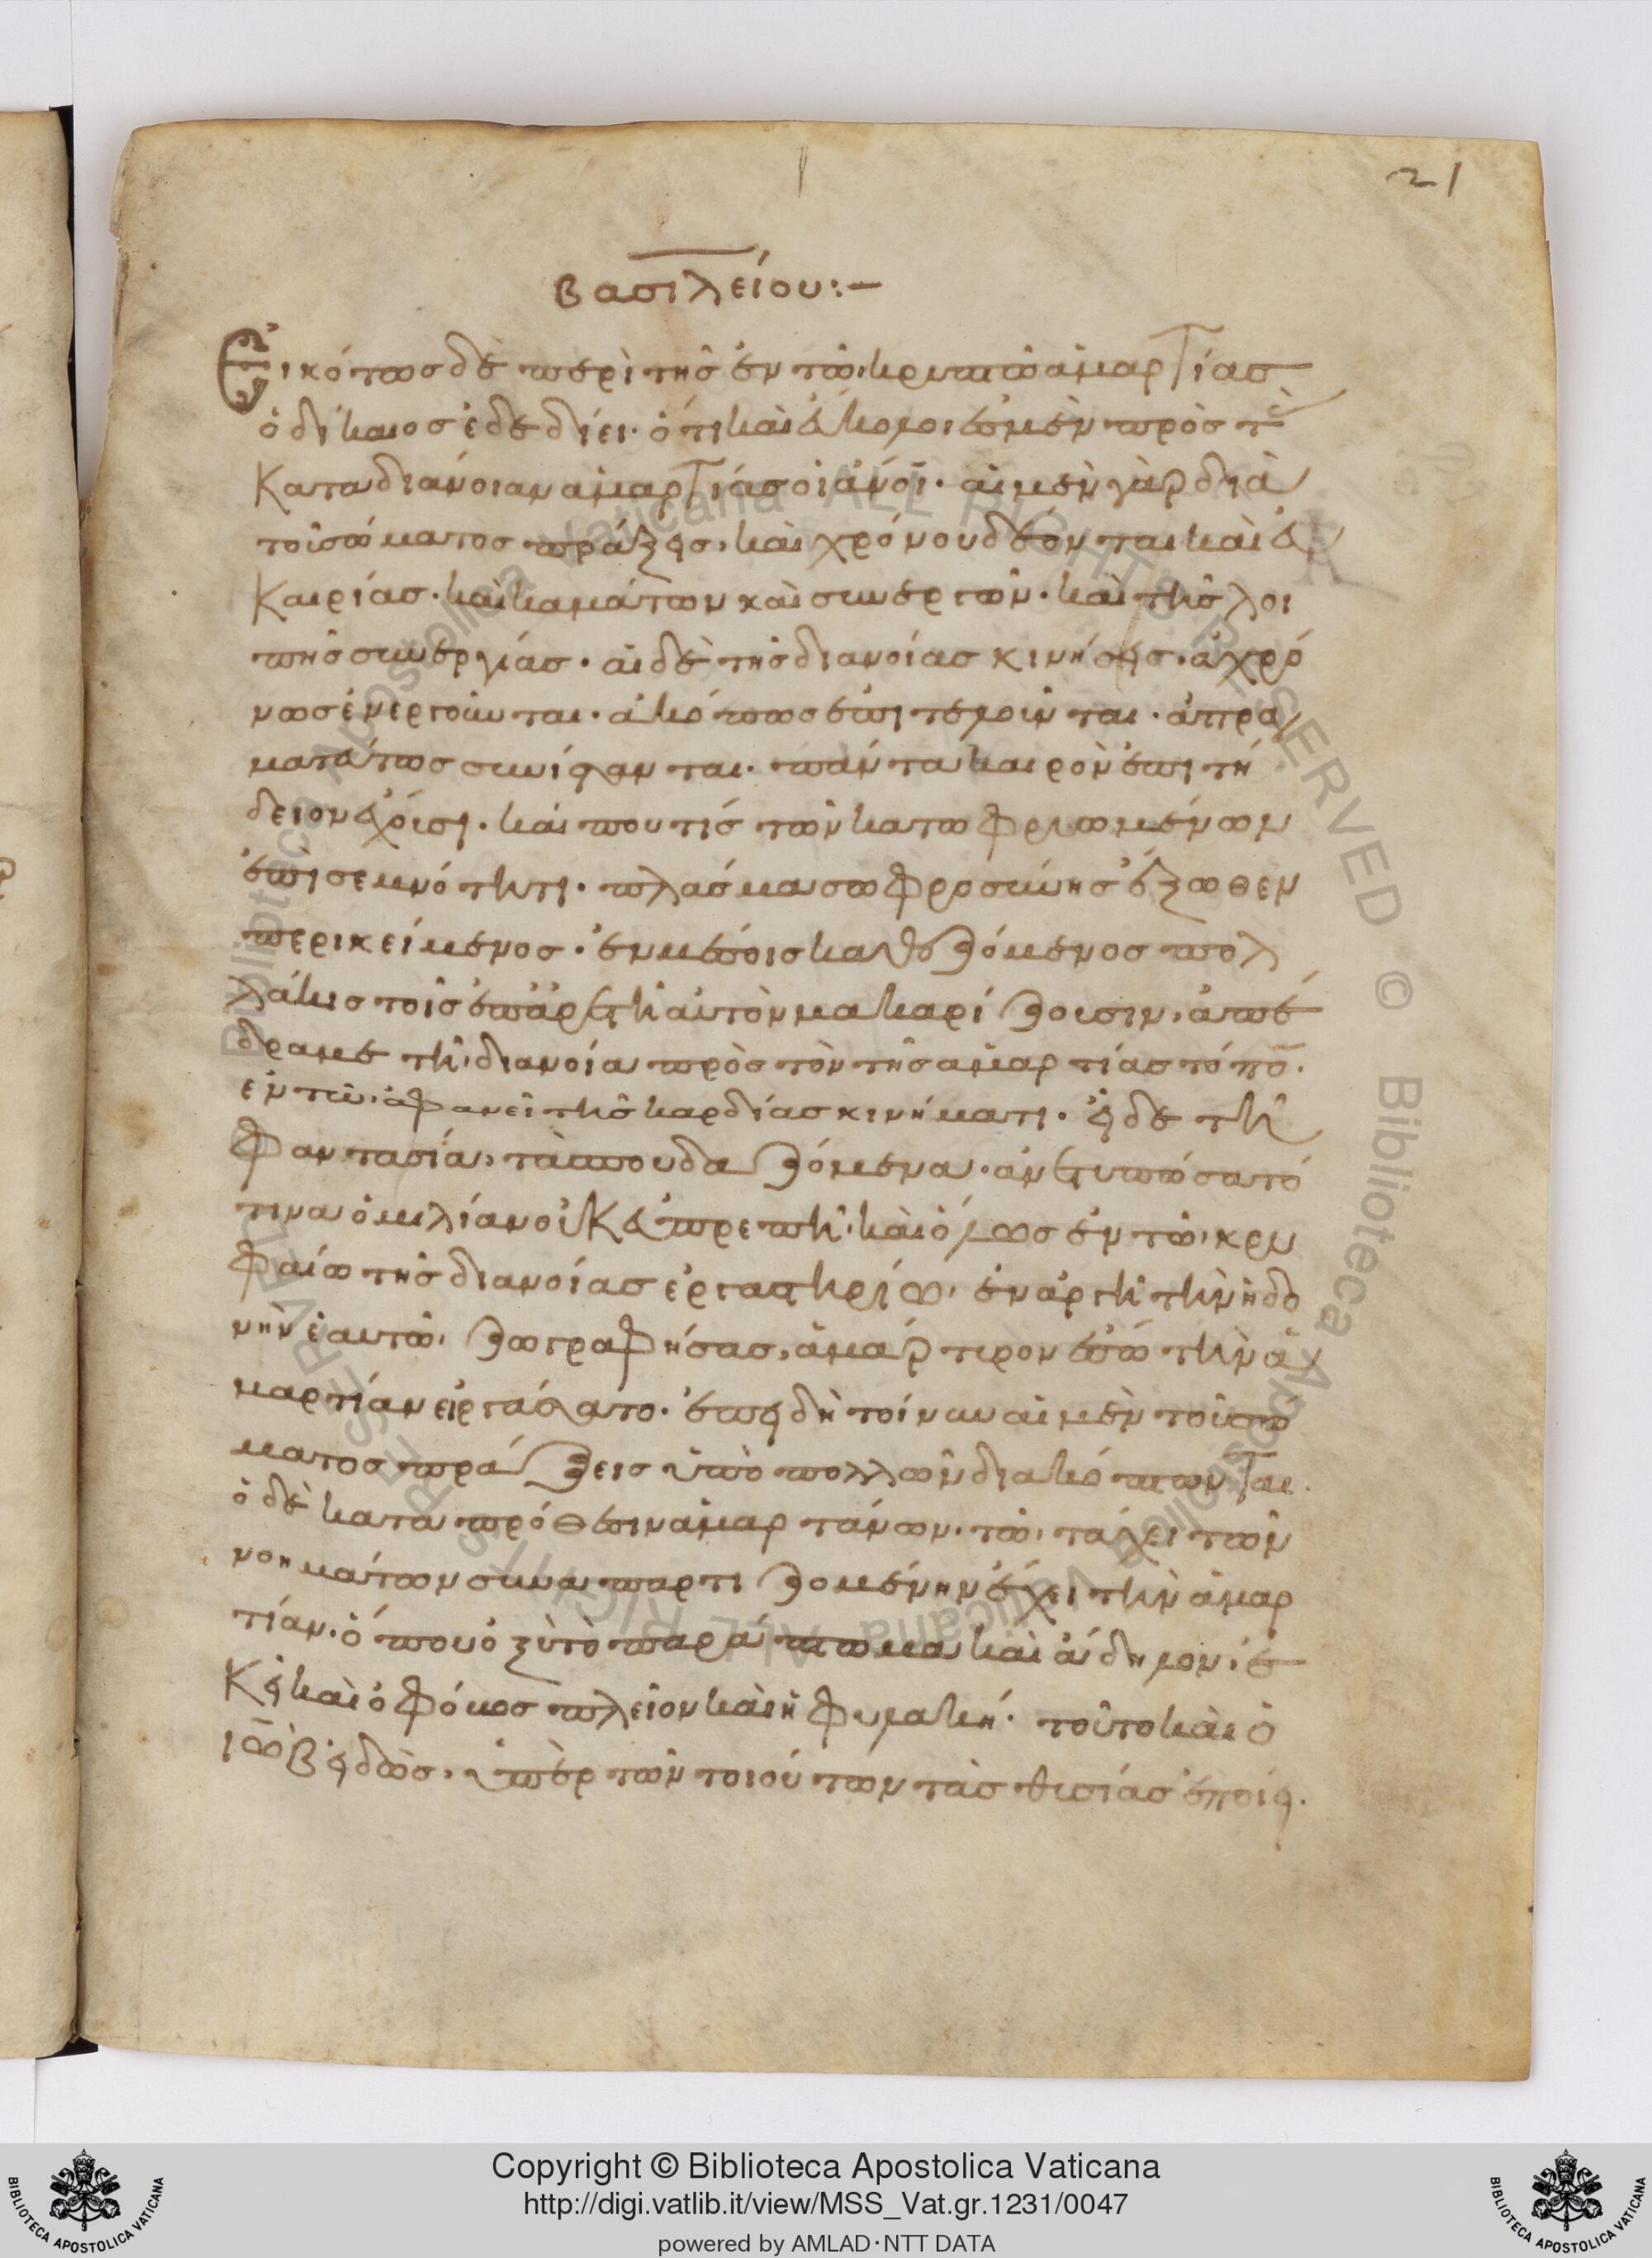 21
βασιλείου:—
Εἰκότως δὲ περὶ τῆς ἐν τῶ κρυπτῶ ἁμαρτίας
ὁ δίκαιος ἐδεδίει· ὅτι καὶ εὔκολοι ἐσμὲν πρὸς τὰ
κατα διάνοιαν ἁμαρτίας οἱ ἄνοι· αἱ μὲν γὰρ διὰ
τοῦ σώματος πράξεις, καὶ χρόνου δέονται καὶ εὐ
καιρίας· καὶ καμάτων καὶ συνεργῶν· καὶ τῆς λοι
πῆς συνεργίας· αἱ δὲ τῆς διανοίας κινήσεις, ἀχρό
νως ἐνεργοῦνται· ἀκόπως ἐπιτελοῦνται· ἀπραγ
ματεύτως συνίστανται· πάντα καιρὸν ἐπιτή
δειον ἔχουσι· καί που τίς τῶν κατωφρυωμένων
ἐπι σεμνότητι· πλάσμα σωφροσύνης ἔξωθεν
περικείμενος· ἐν μέσοις καθεζόμενος πολ
λάκις τοῖς ἐπ ἀρετῆ αὐτὸν μακαρίζουσιν, ἀπέ
δραμε τῆ διανοία πρὸς τὸν τῆς ἁμαρτίας τόπο̄·
ἐν τῶ ἀφανεῖ τῆς καρδίας κινήματι· εἶδε τῆ
φαντασία, τὰ σπουδαζόμενα· ἀνετυπώσατό
τινα ὁμιλίαν οὐκ εὐπρεπῆ· καὶ ὅλως ἐν τῶ κρυ
φαίω τῆς διανοίας ἐργαστηρίω, ἐναργῆ τὴν ἡδο
νὴν ἑαυτῶ ζωγραφήσας, ἀμάρτυρον ἔσω τὴν ἁ
μαρτίαν εἰργάσατο· ἐπειδὴ τοίνυν αἱ μὲν τοῦ σώ
ματος πράξεις ὑπὸ πολλῶν διακόπτονται·
ὁ δὲ κατα πρόθεσιν ἁμαρτάνων· τῶ τάχει τῶν
νοημάτων συναπαρτιζομένην ἔχει τὴν ἁμαρ
τίαν· ὅπου ὀξὺ τὸ παράπτωμα καὶ ἄδηλον· ἐ
κεῖ καὶ ὁ φόβος πλεῖον καὶ ἡ φυλακή· τοῦτο καὶ ὁ
ἰὼβ εἰδὼς, ὑπὲρ τῶν τοιούτων τὰς θυσίας ἐποίει·
Copyright © Biblioteca Apostolica Vaticana
http://digi.vatlib.it/view/MSS_Vat.gr.1231/0047
powered by AMLAD·NTT DATA
BIBLIOTECA APOSTOLICA VATICANA
BIBLIOTECA APOSTOLICA VATICANA